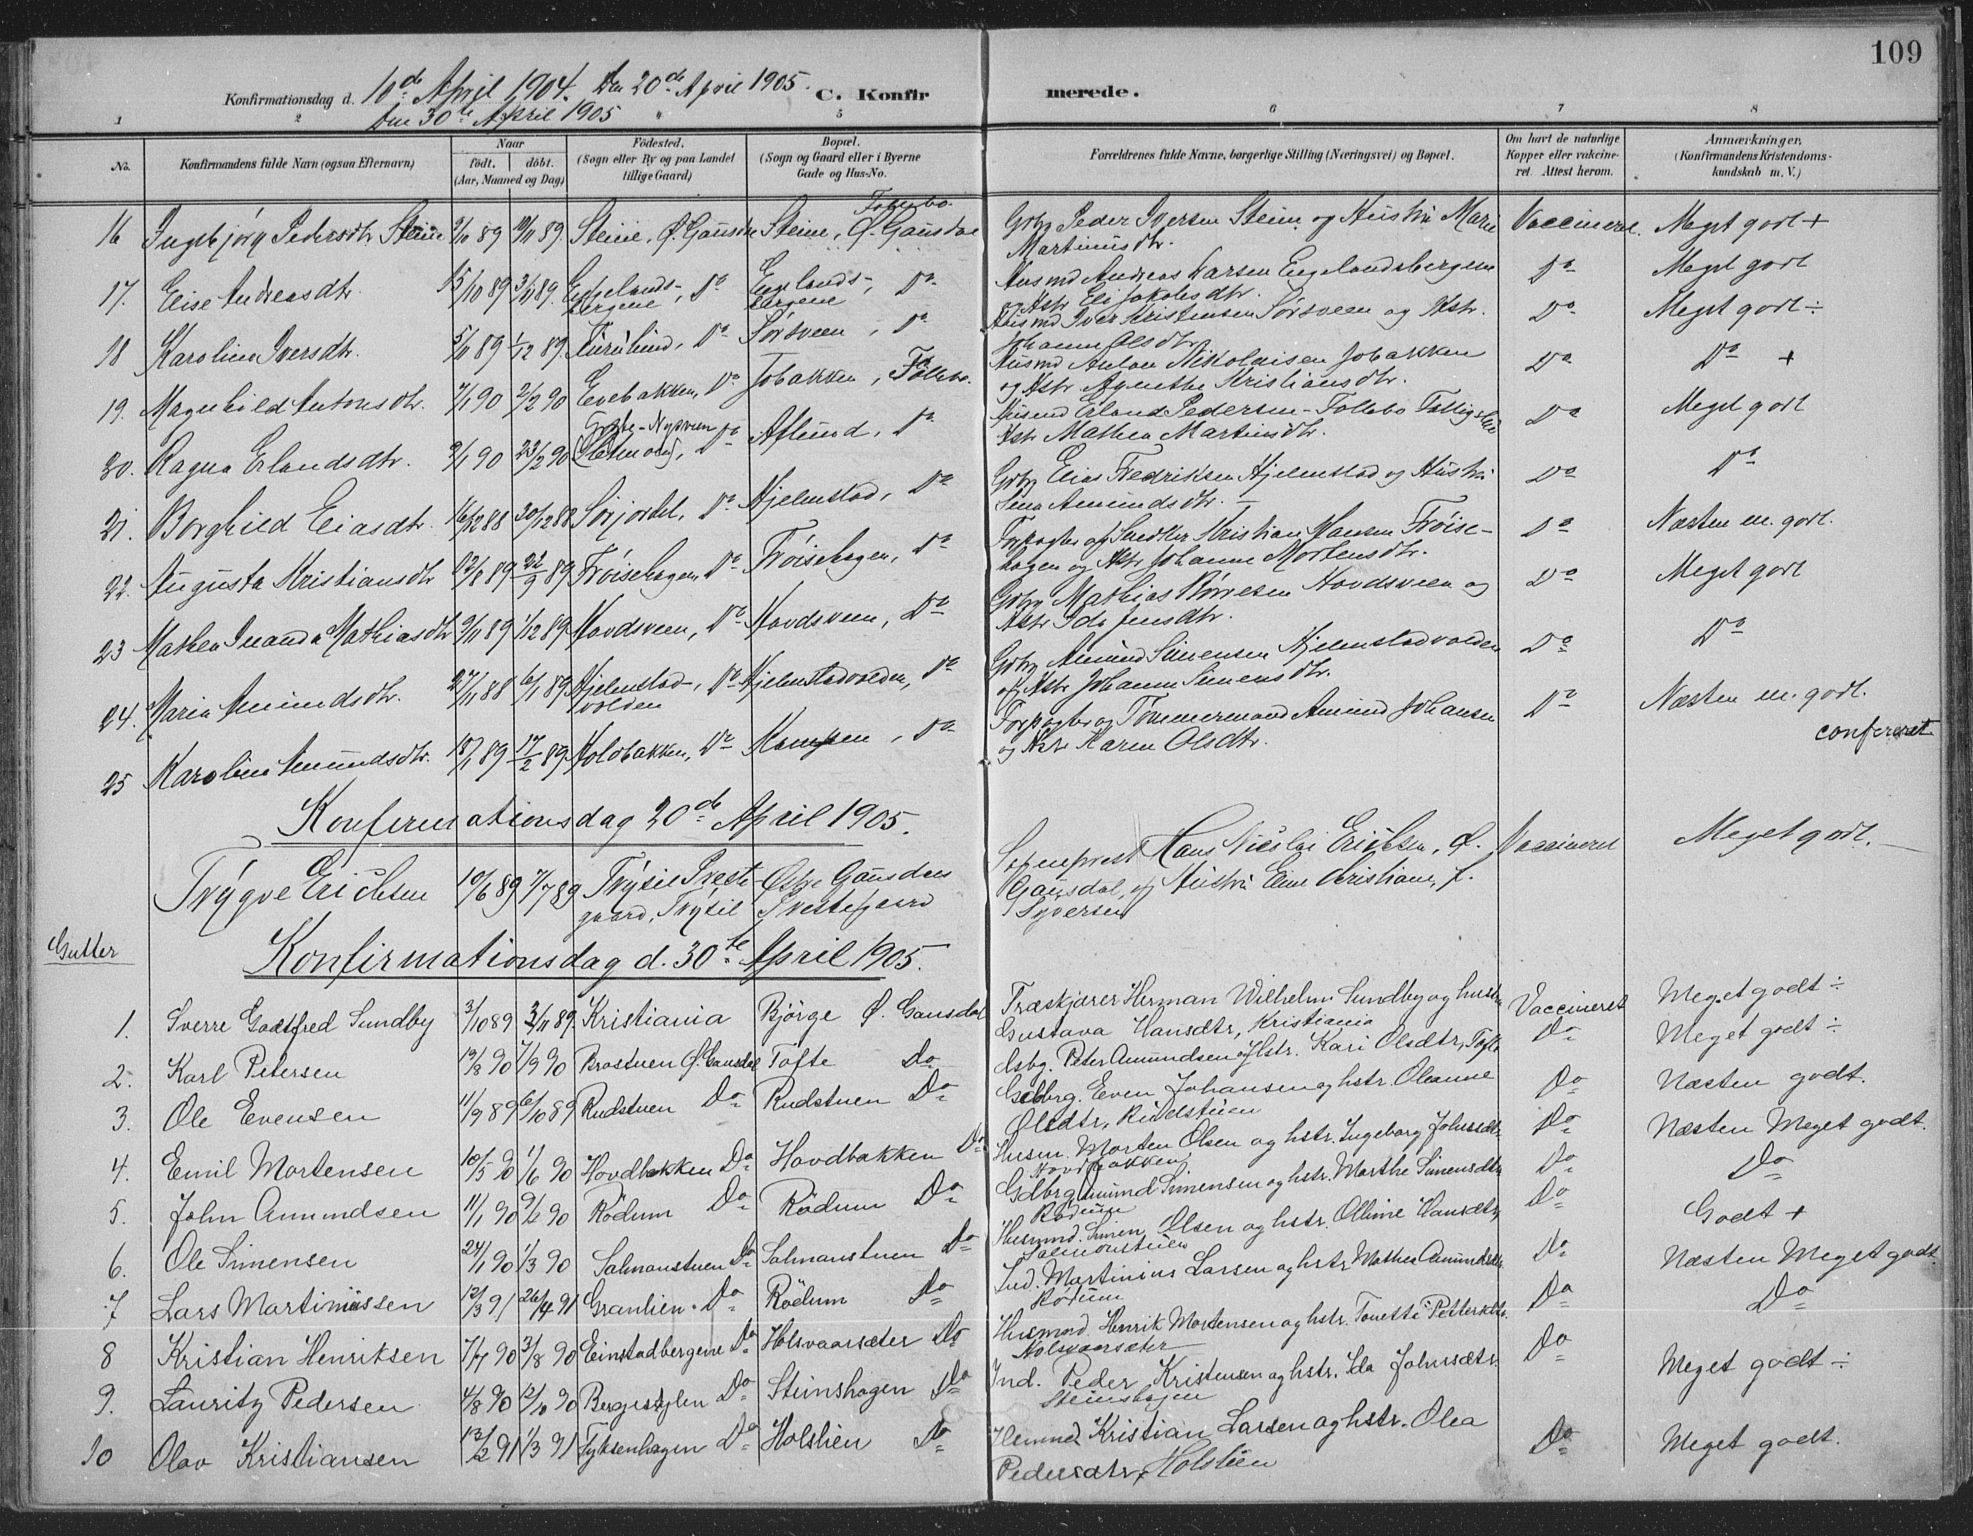 109
Konfirmationsdag d. 10de April 1904. Den 20de April 1905. C. Konfirmerede.
Den 30te April 1905
1 2 5 6 7 8
No. Konfirmandens fulde Navn (ogsaa Efternavn) Naar födt. döbt. (Aar, Maaned og Dag) Födested. (Sogn eller By og paa Landet tillige Gaard) Bopæl. (Sogn og Gaard eller i Byerne Gade og Hus-No. Forældrenes fulde Navne, borgerlige Stilling (Næringsvei) og Bopæl. Om havt de naturlige Kopper eller vaccineret. Attest herom. Anmærkninger. (Konfirmandens Kristendomskundskab m. V.)
16 Ingebjørg Pedersdtr Steine 89 89 Steine, Ø. Gausdal Steine, Ø. Gausdal Follebo Grbg Peder Iversen Steine og Hustru Marie Martinusdtr. Vaccineret. Meget godt +
17. Elise Andreasdtr. 15/10 89 3/11 89. Engelandsbergene, Do Engelandsbergene, Do Husmd Andreas Larsen Engelandsbergene og Hstr Eli Jakobsdtr. Do Meget godt
18 Karoline Iversdtr. 5/11 89 1/12 89. Do Sørsveen, Do Husmd Iver Kristensen Sørsveen og Hstr. Johanne Olsdtr. Do Meget godt ÷
19. Magnhild Antonsdtr. 7/1 90 2/2 90 Evebakken, Do Jobakken, Follebo. Husmd Anton Nikolaisen Jobakken og Hstr Agnethe Kristiansdtr. Do Do +
20. Ragna Erlandsdtr. 9/1 90 23/2 90 Do Aflund, Do Husmd Erland Pedersen Hstr Mathea Martinsdtr. Do Meget godt
21. Borghild Eliasdtr. 16/12 88 30/12 88 Sørjordet, Do Hjelmstad, Do Grbg Elias Fredriksen Hjelmstad og Hustru Amundsdtr. Do Do
22. Augusta Kristiansdtr 22/8 89 22/9 89 Frøisehagen, Do Frøisehagen, Do Forpagter og Snedker Kristian Hansen Frøisehagen og Hstr Johanne Mortensdtr. Do Næsten m. godt.
23 Mathea Mathiasdtr 9/11 89 1/12 89 Hovdsveen, Do Hovdsveen, Do Grbg Mathias Hovdsveen og Hstr Ida Jensdtr. Do Meget godt
24. Maria Amundsdtr. 27/11 88 6/1 89 Hjelmstadvolden Do Hjelmstadvolden, Do Grbg Amund Simensen Hjelmstadvolden og Hstr Johanne Simensdtr. Do Do
25 Karoline Amundsdtr. 18/1 89 17/2 89 Holobakken, Do Kampen, Do Forpagter og Tømmermand Amund Johansen og Hstr Karen Olsdtr. Do Næsten m. godt.
confereret.
Konfirmationsdag 20de April 1905.
Trygve Erichsen 10/6 89 7/7 89 Trysil Prestgaard, Trysil Østre Gausdals Prestegaard Sogneprest Hans Nicolai Erichsen, Ø. Gausdal, og Hustru Kristiane, f. Syversen Vaccineret Meget godt.
Gutter
Konfirmationsdag d. 30te April 1905.
1. Sverre Godtfred Sundby 3/10 89 3/11 89. Kristiania Bjørge Ø. Gausdal Træskjærer Herman Wilhelm Sundby og hustru Gustava Hansdtr, Kristiania Vaccineret Meget godt ÷
2. Karl Petersen 19/8 90 7/9 90 Brostuen Ø. Gausdal Tofte Do Peter Amundsen og Hstr. Kari Olsdtr, Tofte Do Meget godt ÷
3. Ole Evensen 11/9 89 6/10 89 Rudstuen Do Rudstuen Do Gdbrg. Even Johansen og hstr. Oleanne Olsdtr, Rudstuen Do Næsten godt.
4. Emil Mortensen 10/5 90 1/6 90 Hovdbakken Do Hovdbakken Do Husm. Morten Olsen og hstr. Ingeborg Johnsdtr. Hovdbakken Do Næsten Meget godt.
5. John Amundsen 11/1 90 9/2 90 Rödum Do Rödum Do Gdbrg Amund Simensen og hstr. Marthe Simensdtr Rødum Do Do
6. Ole Simensen 24/1 90 1/3 90 Salmonstuen Do Salmonstuen Do Husmnd. Simen Olsen og hstr. Olline Hansdtr, Salmonstuen Do Godt +
7 Lars Martiniussen 12/3 91 26/4 91 Granlien Do Rödum Do Ind. Martinius Larsen og hstr Mathea Amundsdtr Rødum Do Næsten Meget godt.
8 Kristian Henriksen 7/7 90 3/8 90 Einstadbergene Do Holsvaarsæter Do Husmnd. Henrik Mortensen og hstr. Tonette Pettersdtr. Holsvaarsæter Do Do
9. Lauritz Pedersen 4/8 90 12/10 90 Do Steinshagen Do Ind. Peder Kristensen og hstr. Ida Johnsdtr. Steinshagen Do Meget godt ÷
10 Olav Kristiansen 13/2 91 1/3 91 Tyksenhagen Do Holslien Do Husmnd Kristian Larsen og hstr. Olea Pedersdtr, Holslien Do Meget godt.